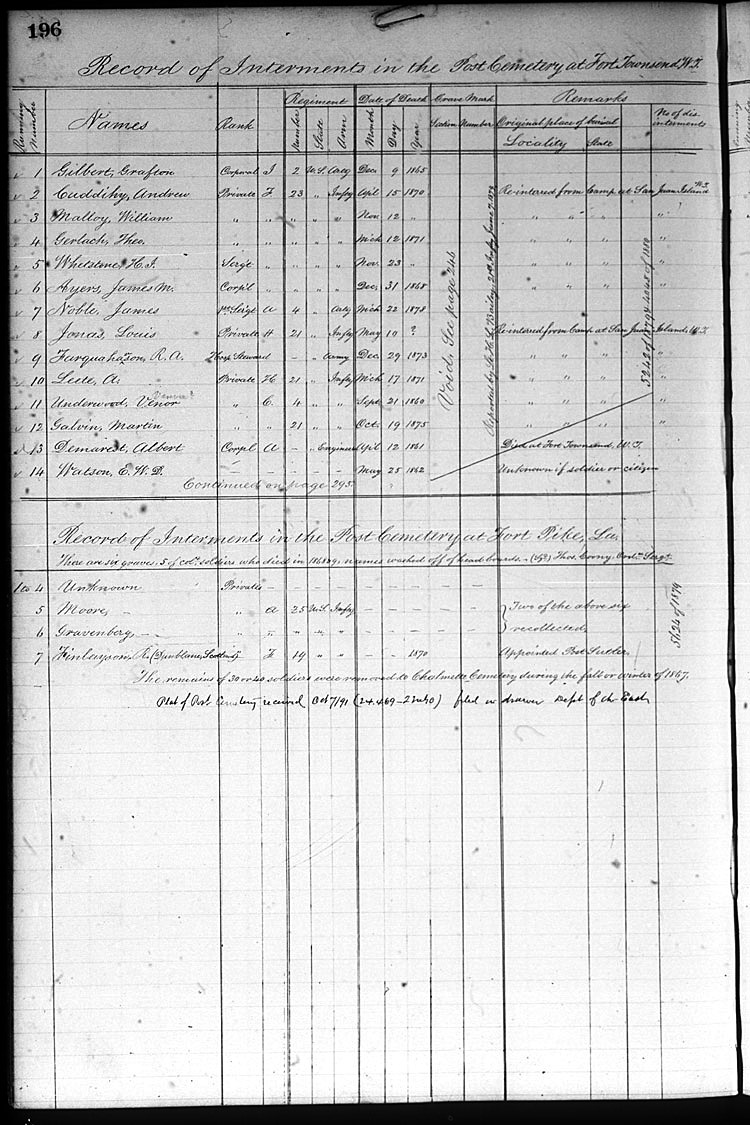 196
Record of Interments in the Post Cemetery at Fort Townsend W.T.
Running Number Names Rank Regiment Number State Arm Date of Death Month Day Year Grave Mark Section Number Remarks Original place of burial Locality State No of disinterments
1 Gilbert, Grafton Corporal I 2 U.S. Arty Dec 9 1865
2 Cuddihy, Andrew Private F 23 " Infty Apl 15 1870 Re-interred from Camp at San Juan Island W.T.
3 Malloy, William " " " " " Nov. 12 " " " " "
4 Gerlach, Theo. " " " " " Mch 12 1871 " " " "
5 Whetstone, H.I. Sergt " " " " Nov. 23 " " " " "
6 Ayers, James M. Corpl " " " " Dec. 31 1868 " " " "
7 Noble, James 1st Sergt A 4 " Arty Mch 22 1878
8 Jonas, Louis Private H 21 " Infty May 19 ? Re-interred from Camp at San Juan Island W.T.
9 Farquaharson, R. A. Hosp Steward - " Army Dec. 29 1873 " " " "
10 Lede, A. Private H. 21 " Infty Mch 17 1871 " " " "
11 Underwood, Venor " C. 4 " " Sept 21 1860 " " " "
12 Galvin, Martin " 21 " " Oct. 19 1875 " " " "
13 Demarest, Albert Corpl A - " Engineer Apil 12 1861 Died at Fort Townsend, W.T.
14 Watson, E. W. D. - - - - - May 25 1862 Unknown if soldier or citizen
Continued on page 295.
Void. See page 246
5242 of 1879
Record of Interments in the Post Cemetery at Fort Pike, La.
There are six graves, 5 of cold soldiers who died in 1868 & 9, names washed off of head boards. - Thos. Ordn. Sergt.
1 to 4 Unknown Privates -
5 Moore, - " A 25 U.S. Infty - - - } Two of the above six
6 Gravenberg, - " " " " " - - - recollected.
7 Finlayson, R. (Dunblane, Scotland) F 19 " " - - 1870 Appointed Post Sutler.
5624 of 1879
The remains of 30 or 40 soldiers were removed to Chalmette Cemetery during the fall or winter of 1867.
Plat of Post Cemetery received Oct 7/91 filed in drawer Dept of the East